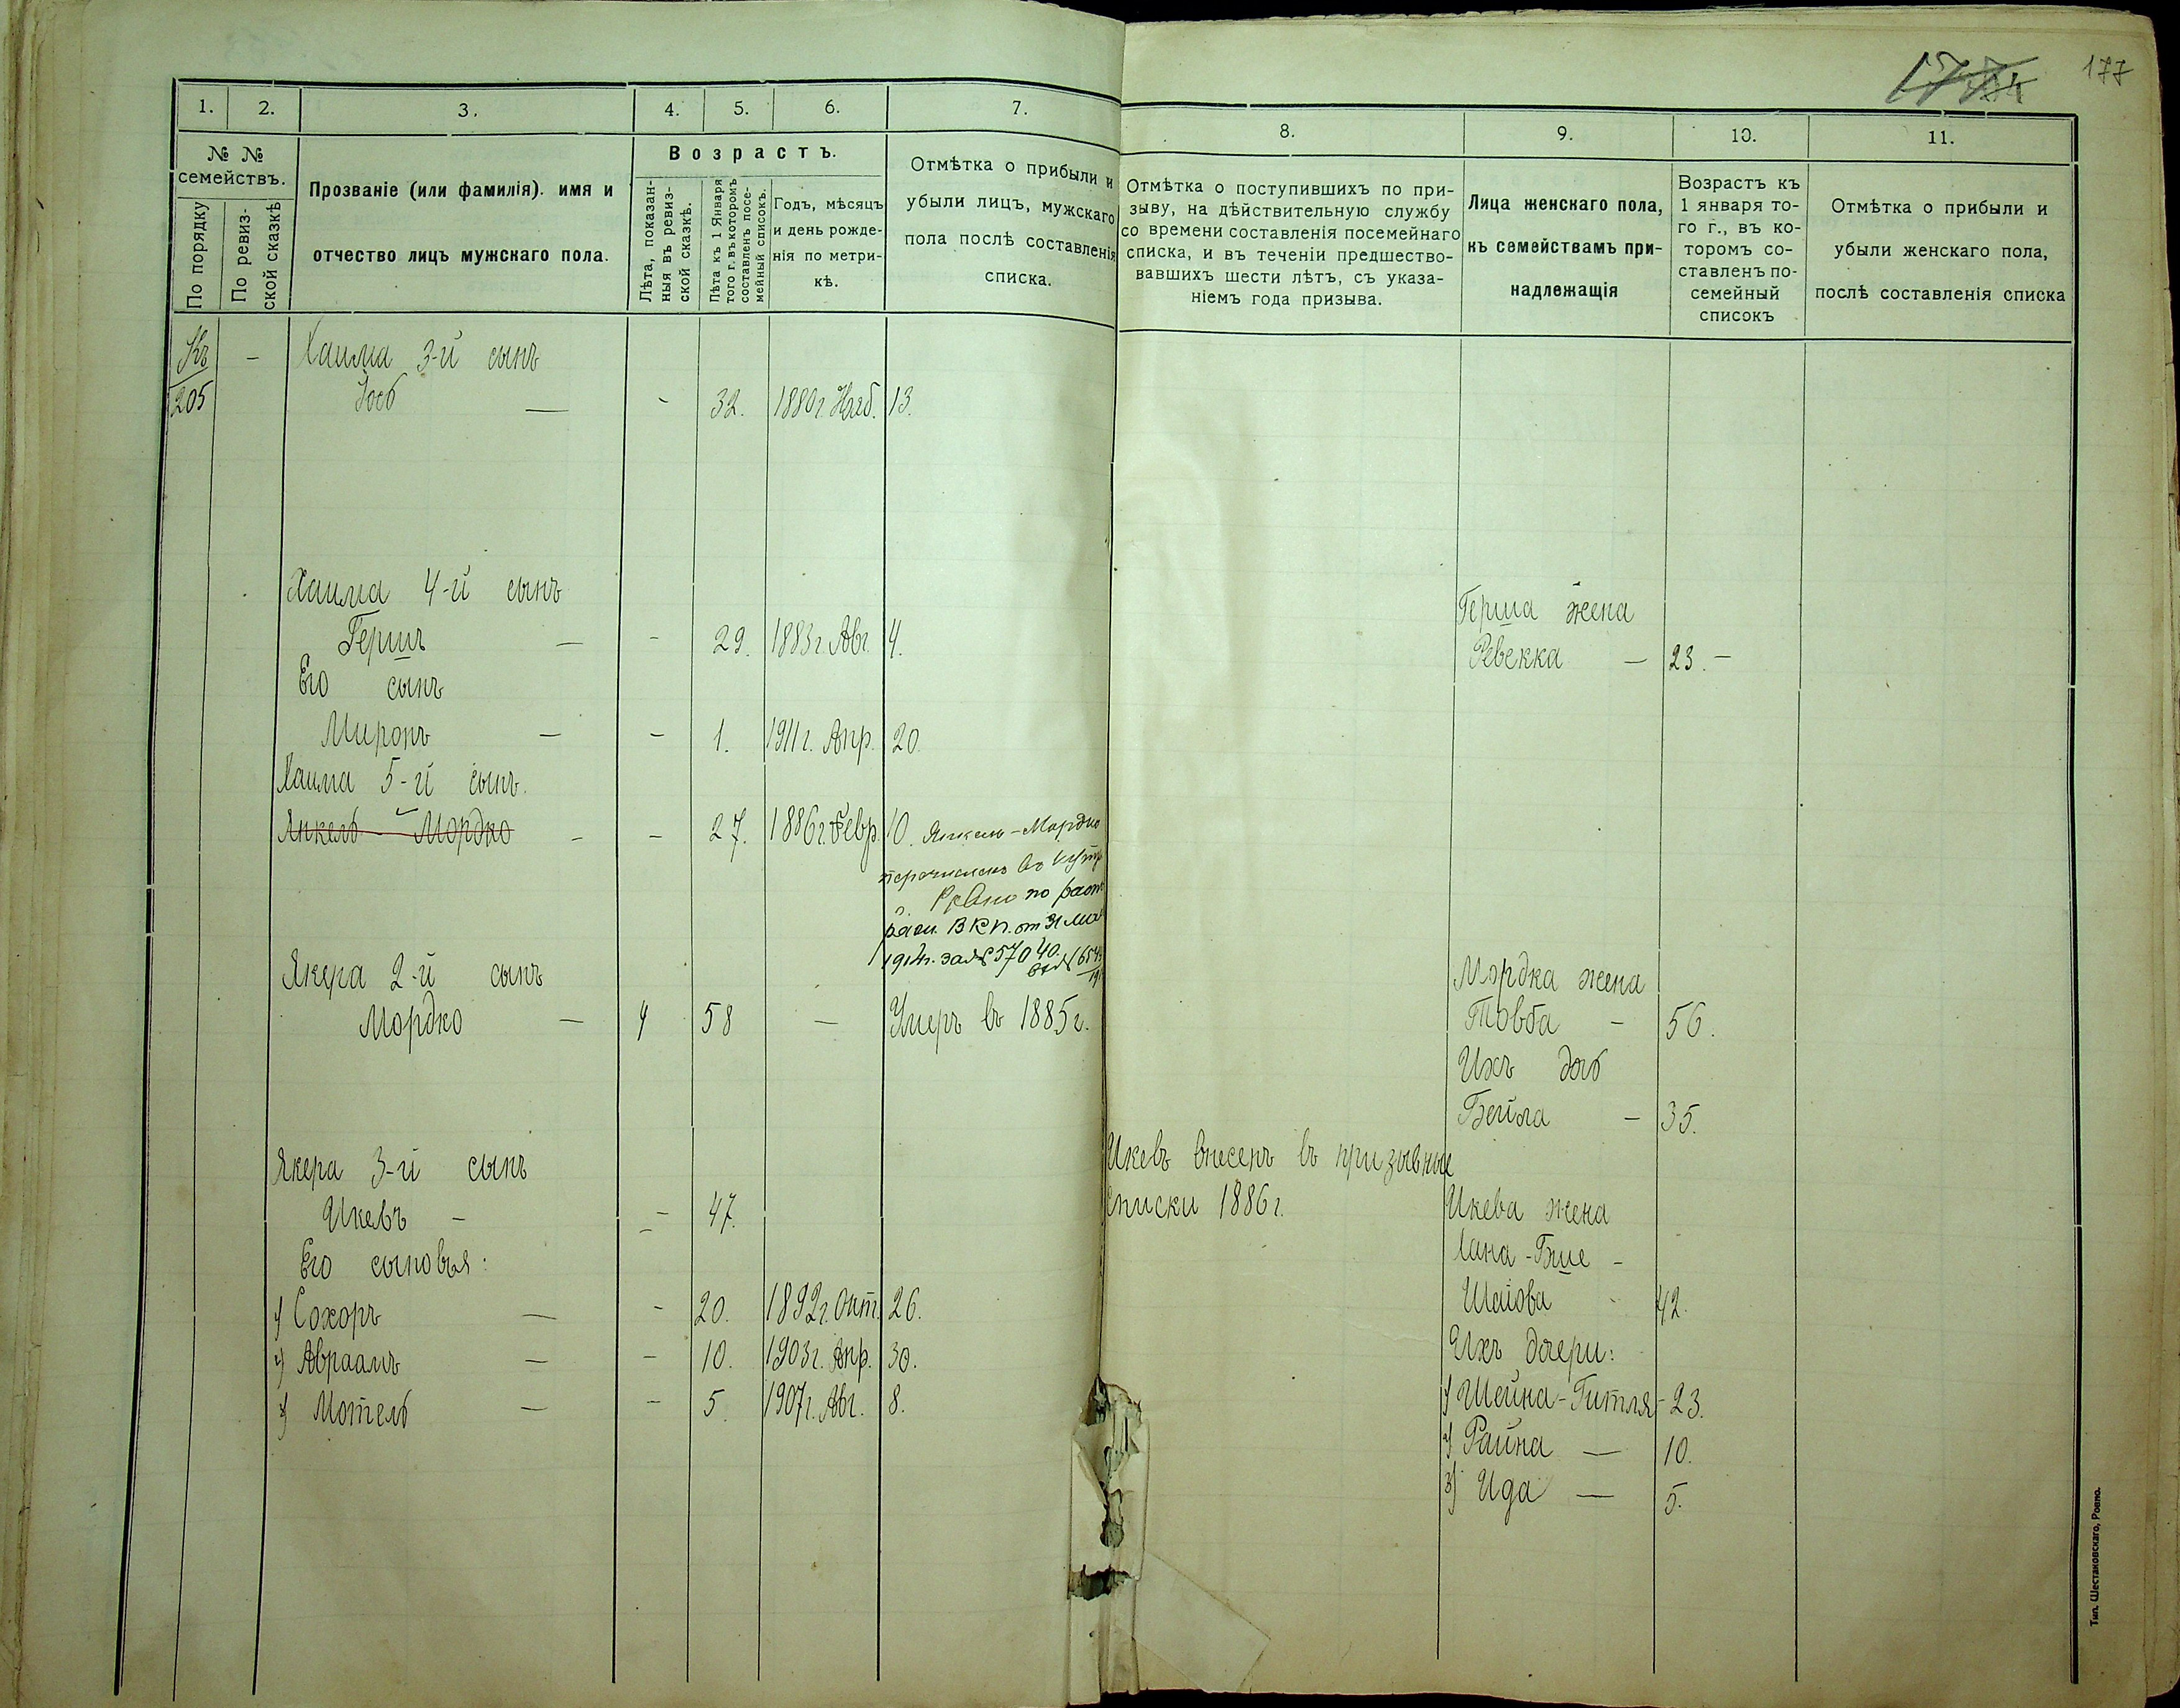 177
1.
2.
3.
4.
5.
6.
7.
№ №
семействъ.
По порядку
По ревиз-
ской сказкѣ
Прозваніе (или фамилія). имя и
отчество лицъ мужскаго пола.
Возрастъ.
Лѣта, показан-
ныя въ ревиз-
ской сказкѣ.
Лѣта къ 1 Января
того г. въ которомъ
составленъ посе-
мейный списокъ.
Годъ, мѣсяцъ
и день рожде-
нія по метри-
кѣ.
Отмѣтка о прибыли и
убыли лицъ, мужскаго
пола послѣ составленія
списка.
8.
9.
10.
11.
Отмѣтка о поступившихъ по при-
зыву, на дѣйствительную службу
со времени составленія посемейнаго
списка, и въ теченіи предшество-
вавшихъ шести лѣтъ, съ указа-
ніемъ года призыва.
Лица женскаго пола,
къ семействамъ при-
надлежащія
Возрастъ къ
1 января то-
го г., въ ко-
торомъ со-
ставленъ по-
семейный
списокъ
Отмѣтка о прибыли и
убыли женскаго пола,
послѣ составленія списка
Къ - Хаима 3-й сынъ
205 — - 32. 1880г. 13.
Хаима 4-й сынъ
Гершъ — - 29. 1883г. Авг. 4.
Его сынъ
Миронъ — - 1. 1911г. Апр. 20.
Хаима 5-й сынъ.
Янкель - Мордко - - 27. 1886г. Февр. 10. Янкель-Мордко
перечисленъ въ
по
от 31
1914г. за № 57040.
Якера 2-й сынъ
Мордко — 4 58 — Умеръ въ 1885г.
Якера 3-й сынъ
Икевъ - - 47.
Его сыновья:
1) Сохоръ — - 20. 1892г. Окт. 26.
2) Авраамъ — - 10. 1903г. Апр. 30.
3) Мотель — - 5. 1907г. Авг. 8.
Икевъ внесенъ въ призывные
списки 1886г.
Герша жена
Ревекка — 23. -
Мордка жена
Товба - 56.
Ихъ дочь
Бейла - 35.
Икева жена
Хана-
Шаіова 42.
Ихъ дочери:
1) Шейна-Гитля - 23.
2) Райна — 10.
3) Ида — 5.
Тип. Шестаковскаго, Ровно.